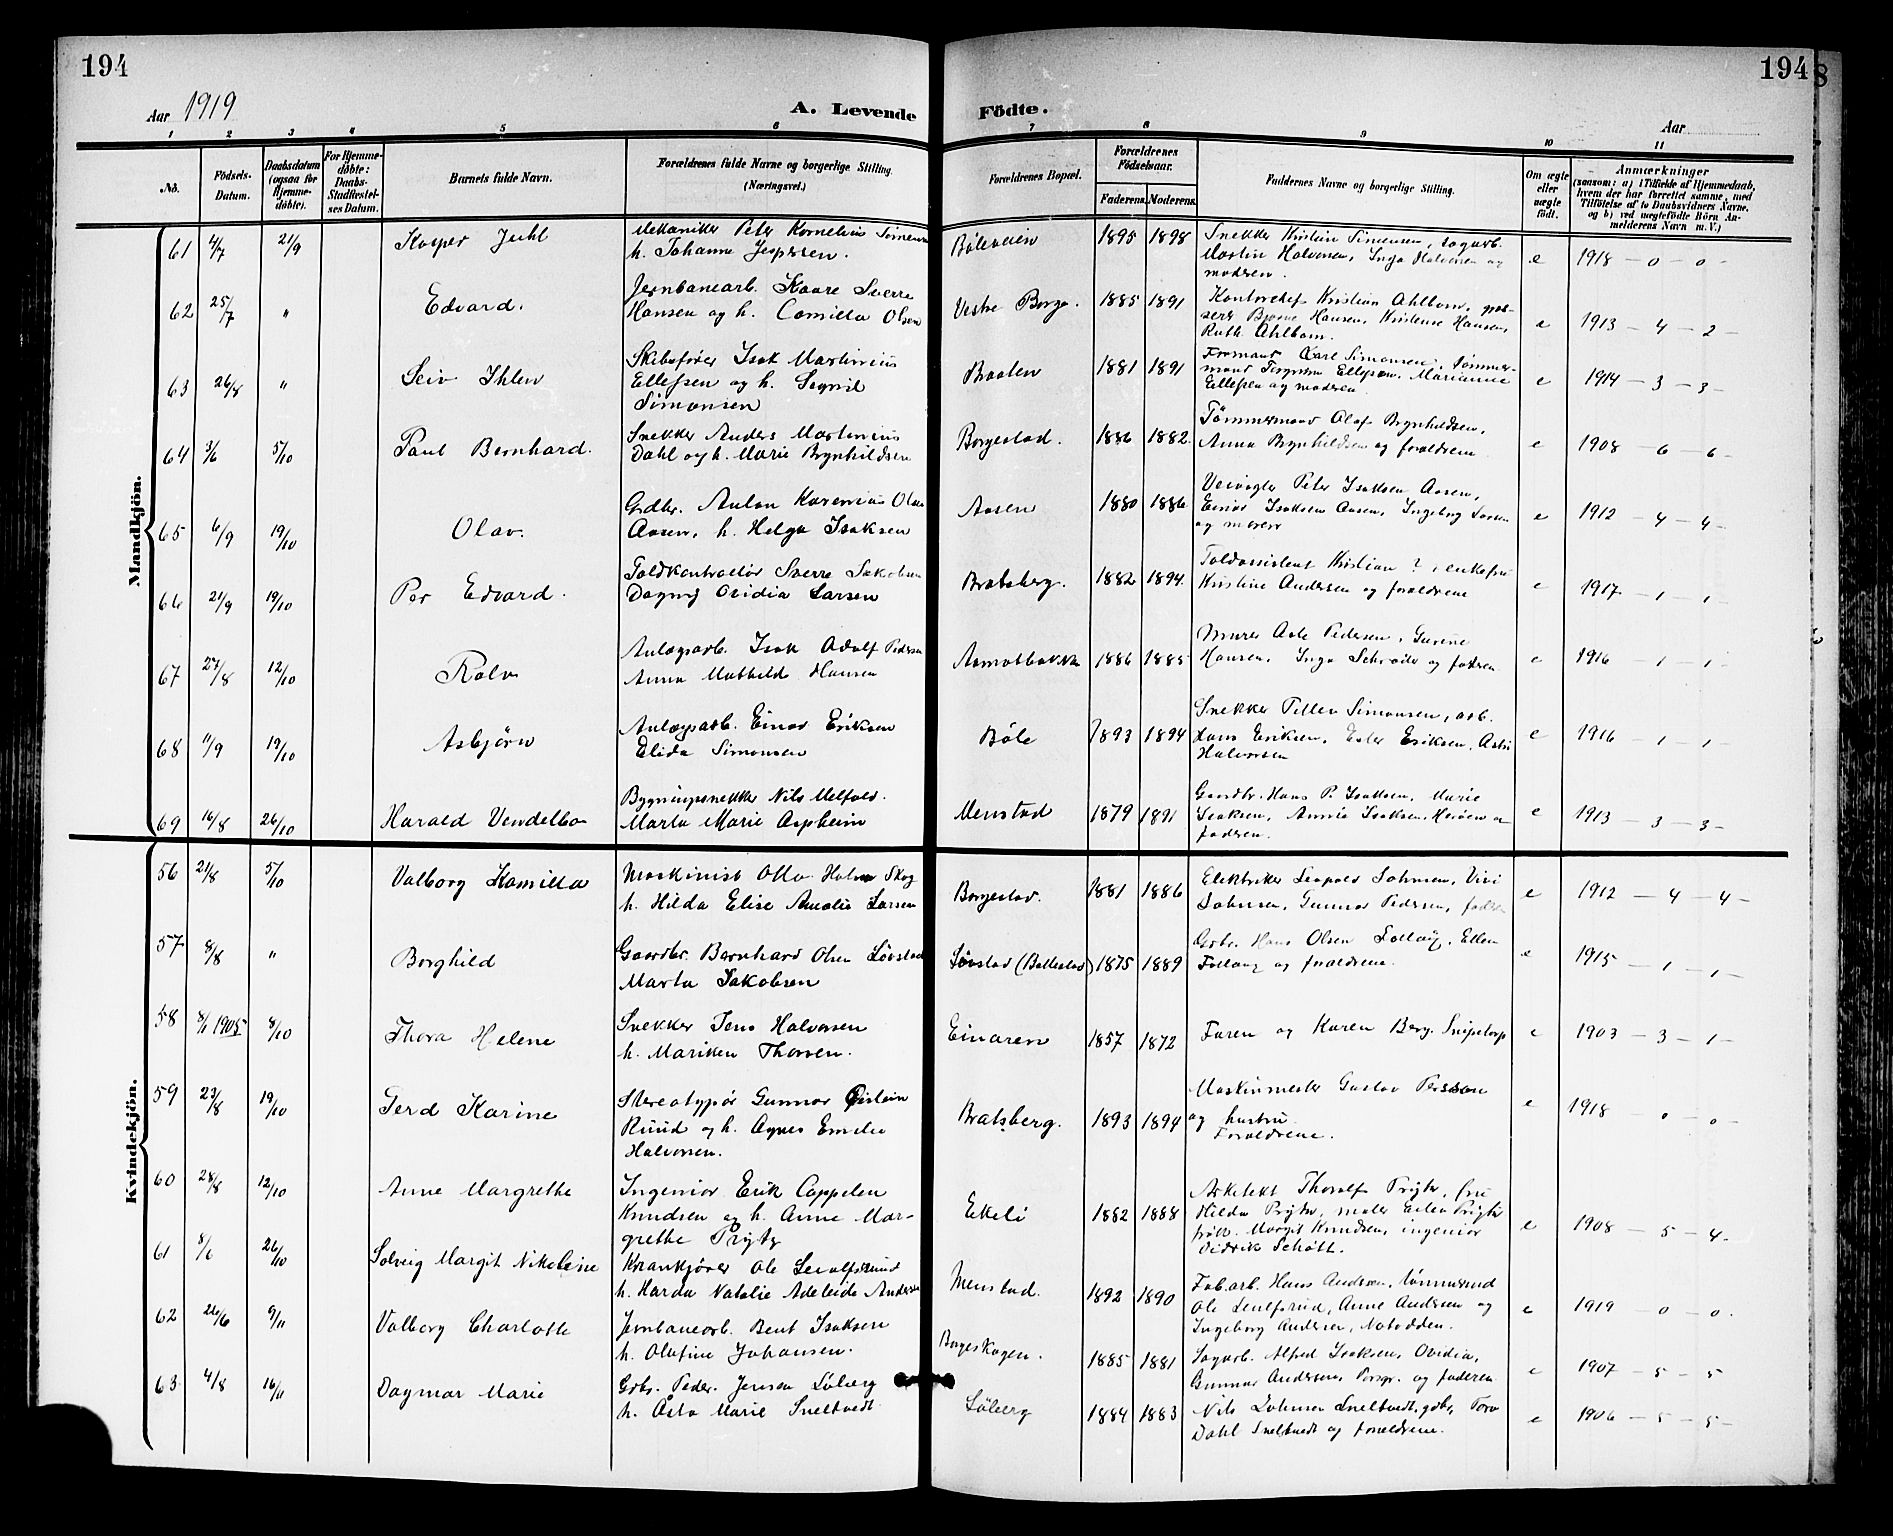 194
194
8
Aar 1919
A. Levende
Födte.
Aar
1 2 3 4 5 6 7 8 9 10 11
No.
Födsels-
Datum.
Daabsdatum
(ogsaa for
Hjemme-
döbte).
For Hjemme-
döbte:
Daabs-
Stadfæstel-
ses Datum.
Barnets fulde Navn.
Forældrenes fulde Navne og borgerlige Stilling.
(Næringsvei.)
Forældrenes Bopæl.
Forældrenes
Födselsaar.
Faderens. Moderens.
Faddernes Navne og borgerlige Stilling.
Om ægte
eller
uægte
födt.
Anmærkninger
(saasom: a) i Tilfælde af Hjemmedaab,
hvem der har forrettet samme, med
Tilföielse af to Daabsvidners Navne,
og b) ved uægtefödte Börn An-
melderens Navn m. V.)
Mandkjön.
61 4/7 21/9 Kasper Juhl
Mekaniker Peter Kornelius Simensen
h. Johanne Jespersen.
Böleveien 1895 1898
Snekker Kristian Simensen, sagarb.
Martin Halvorsen, Inga Halvorsen og
modren
e 1918 - 0 - 0 -
62 25/7 " Edvard.
Jernbanearb. Kaare Sverre
Hansen og h. Camilla Olsen
Vestre Borge. 1885 1891
Kontorchef Kristian Ahlbom,
Bjarne Hansen, Kristine Hansen,
Ruth Ahlbom.
e 1913 - 4 - 2 -
63 26/8 " Leiv Ihlen
Skibsfører Isak Martinius
Ellefsen og h. Sagnil
Simonsen
Braaten 1881 1891
Formand Carl Simonsen, tømmer-
mand Ellefsen, Marianne
Ellefsen og modren
e 1914 - 3 - 3 -
64 3/6 5/10 Paul Bernhard.
Snekker Anders Martinius
Dahl og h. Marie Brynhildsen
Borgestad. 1886 1882
Tömmermand Olaf Brynhildsen,
Anna Brynhildsen og forældrene
e 1908 - 6 - 6 -
65 6/9 19/10 Olav.
Grdbr. Anton Karenius Olsen
Aasen, h. Helga Isaksen
Aasen 1880 1886
Veivogter Peter Isaksen Aasen,
Einar Isaksen Aasen, Ingeborg Larsen
og moren
e 1912 - 4 - 4 -
66 21/9 19/10 Per Edvard.
Toldkontrollör Sverre Jakobsen
Dagny Ovidia Larsen
Bratsberg. 1882 1894
Toldassistent Kristian ?, enkefru
Kristine Andersen og forældrene
e 1917 - 1 - 1 -
67 27/8 12/10 Rolv
Anlægsarb. Isak Adolf Pedersen
Anna Mathilde Hansen
Aamotbakken 1886 1885
Murer Asle Pedersen, Gurine
Hansen, Inga Schrøder og fadren
e 1916 - 1 - 1 -
68 11/9 19/10 Asbjörn
Anlægsarb. Einar Eriksen
Elida Simonsen
Böle 1893 1894
Snekker Petter Simonsen, arb.
Hans Eriksen, Ester Eriksen, Astri
Halvorsen
e 1916 - 1 - 1 -
69 16/8 26/10 Harald Vendelbo
Bygningssnekker Nils Melfald.
Marta Marie Aspheim
Menstad 1879 1891
Gaardbr. Hans P. Isaksen, Marie
Isaksen, Annie Isaksen, Herøen og
fadren.
e 1913 - 3 - 3 -
Kvindekjön.
56 21/8 5/10 Valborg Kamilla
Maskinist Otto Holm Skog
h. Hilda Elise Amalie Larsen
Borgestad. 1881 1886
Elektriker Leopold Johnsen, Vivi
Johnsen, Gunnar Pedersen, fadren
e 1912 - 4 - 4 -
57 8/8 " Borghild
Gaardbr. Bernhard Olsen Løvstad
Marta Jakobsen
Løvstad (Ballestad) 1875 1889
Grbr. Hans Olsen Follaug, Ellen
Follaug og forældrene.
e 1915 - 1 - 1 -
58 8/1 1905 8/10 Thora Helene
Snekker Jens Halvorsen
h. Mariken Thorsen.
Einaren 1857 1872
Faren og Karen Berg, Snipetorp
e 1903 - 3 - 1 -
59 23/8 19/10 Gerd Karine
Stereotypør Gunnar Øistein
Ruud og h. Agnes Emelie
Halvorsen.
Bratsberg. 1893 1894
Maskinmester Gustav Persson
og hustru
Forældrene.
e 1918 - 0 - 0 -
60 28/8 12/10 Anne Margrethe
Ingeniør Erik Cappelen
Knudsen og h. Anne Mar-
grethe Prytz
Ekeli 1882 1888
Arkitekt Thorolf Prytz, fru
Hilda Prytz, maler Eilen Prytz
frøk. Margit Knudsen, ingeniør
Didrik Schøtt.
e 1908 - 5 - 4 -
61 8/6 26/10 Solveig Margit Nikoline
Krankjører Ole Leralfsrud
h. Harda Natalie Adeleide Andersen
Menstad. 1892 1890
Fab.arb. Hans Andersen, tömmermd
Ole, Anne Andersen og
Ingeborg Andersen, Notodden.
e 1919 - 0 - 0.
62 26/6 9/11 Valborg Charlotte
Jernbanearb. Bent Isaksen
h. Olafine Johansen.
Borgeskogen. 1885 1881
Sagarb. Alfred Isaksen, Ovidia,
Gunnar Andersen, Porsgr. og faderen
e 1907 - 5 - 5
63 4/8 16/11 Dagmar Marie
Grbr. Peder Jensen Löberg
h. Asta Marie Sneltvedt
Löberg 1884 1883
Nils Johnsen Sneltvedt, gdbr, Tora
Dahl Sneltvedt og forældrene.
e 1906 - 5 - 5 -